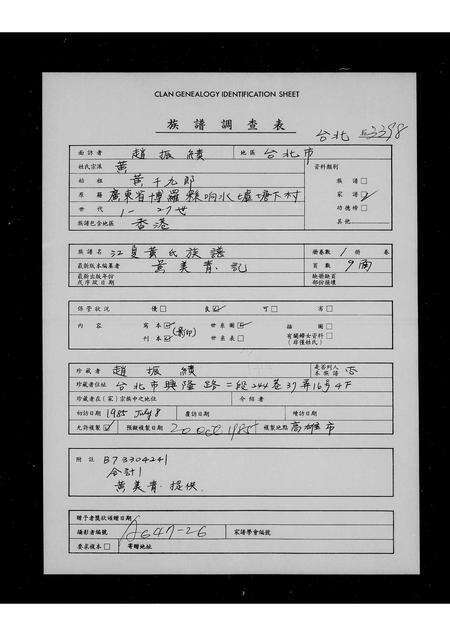 CLAN GENEALOGY IDENTIFICATION SHEET
族譜調查表
台北
面訪者 趙振績 地區 台北市
姓氏宗派 黃 資料類別
始祖 黃千九郎 族譜
原籍 廣東省博羅縣响水墟塘下村 家譜 ✓
世代 1-27世 功德榜
族譜包含地區 香港 其他
族譜名 江皇黃氏族譜 冊卷數 1 冊 卷
最新版本編纂者 黃美貴.記 頁數 9面
最新出版年份或序跋日期 缺冊缺頁部份損壞
保管狀況 優 良 ✓ 可 劣
內容 寫本 ✓ (影印) 世系圖 ✓ 插圖
刊本 世系表 有關婦女資料(非僅姓氏)
珍藏者 趙振績 是否列入本族譜 否
珍藏者住址 台北市興隆路二段244巷37弄16号4F
珍藏者在(家)宗族中之地位 介紹者
初訪日期 1985 July 8 覆訪日期 續訪日期
允許複製 ✓ 預擬複製日期 20 Oct 1985 複製地點 高雄市
附註 B73304241
合計1
黃美貴.提供.
贈予者獎狀頒贈日期
攝影者編號 A647-26 家譜學會編號
要求複本 寄贈地址